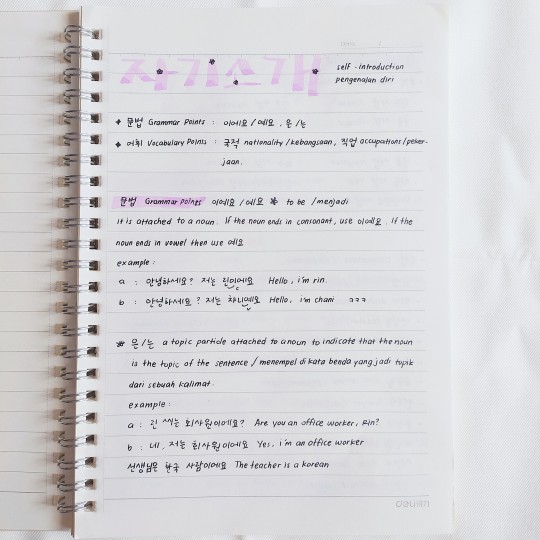 자기소개
self-introduction
pengenalan diri
문법 Grammar Points : 이에요 / 예요 , 은 / 는
어휘 Vocabulary Points : 국적 nationality / kebangsaan, 직업 occupations / peker-
jaan.
문법 Grammar Points 이에요 / 예요 to be / menjadi
it is attached to a noun. If the noun ends in consonant, use 이에요 . If the
noun ends in vowel then use 예요
example :
a : 안녕하세요? 저는 린이에요 Hello, i'm rin.
b : 안녕하세요? 저는 채니예요 Hello, i'm chani ㅋㅋㅋ
은 / 는 a topic particle attached to a noun to indicate that the noun
is the topic of the sentence / menempel di kata benda yang jadi topik
dari sebuah kalimat.
example :
a : 린 씨는 회사원이에요? Are you an office worker, Rin?
b : 네, 저는 회사원이에요 Yes, i'm an office worker
선생님은 한국 사람이에요 The teacher is a korean
deli